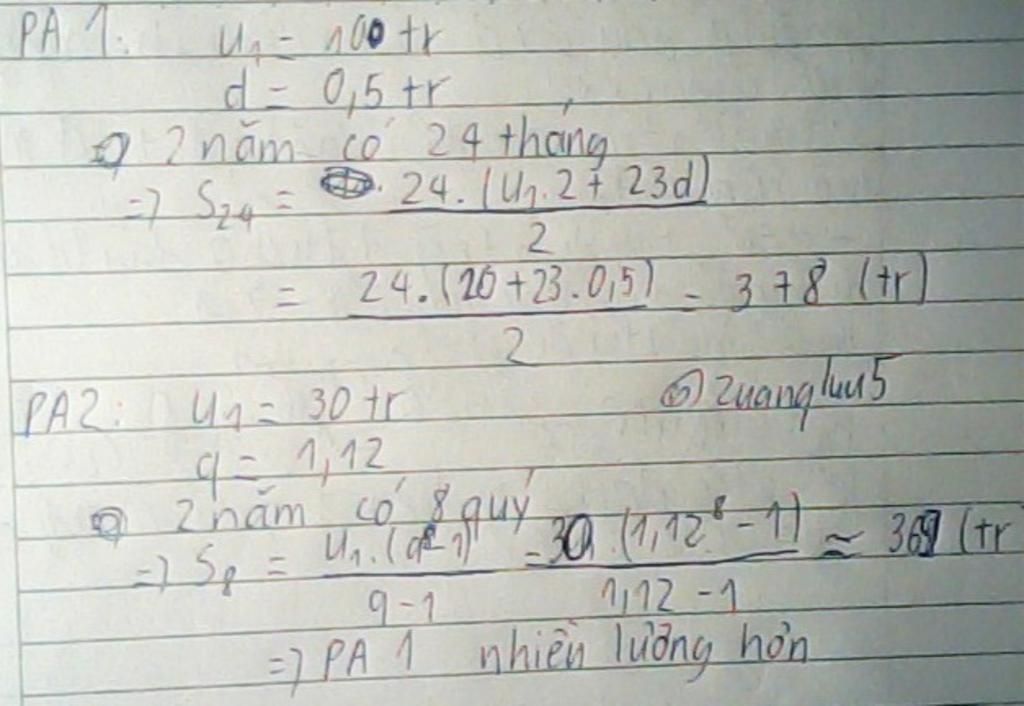 PA 1: u₁ = 100 tr
d = 0,5 tr
2 năm có 24 tháng
=> S₂₄ = 24.(u₁.2 + 23d) / 2
= 24.(20 + 23.0,5) / 2 = 378 (tr)
PA2: u₁ = 30 tr @zuangluu5
q = 1,12
2 năm có 8 quý
=> S₈ = u₁.(q⁸-1) / q-1 = 30.(1,12⁸ - 1) / 1,12 - 1 ≈ 369 (tr
=> PA 1 nhiều lương hơn